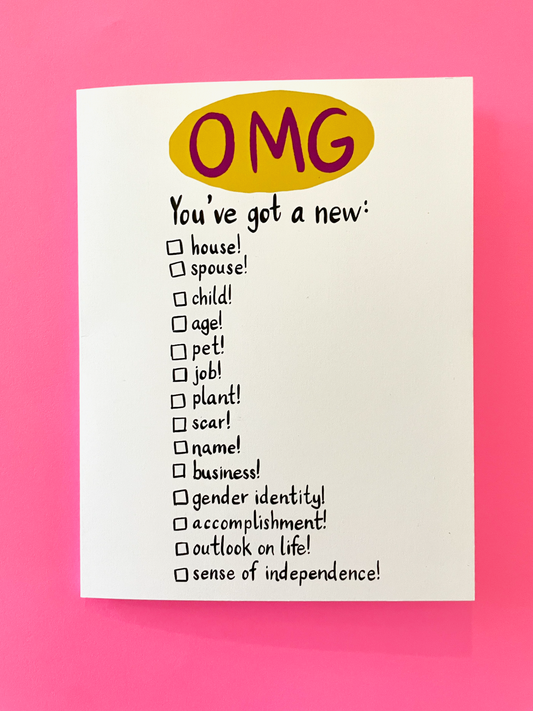 OMG
You've got a new:
house!
spouse!
child!
age!
pet!
job!
plant!
scar!
name!
business!
gender identity!
accomplishment!
outlook on life!
sense of independence!